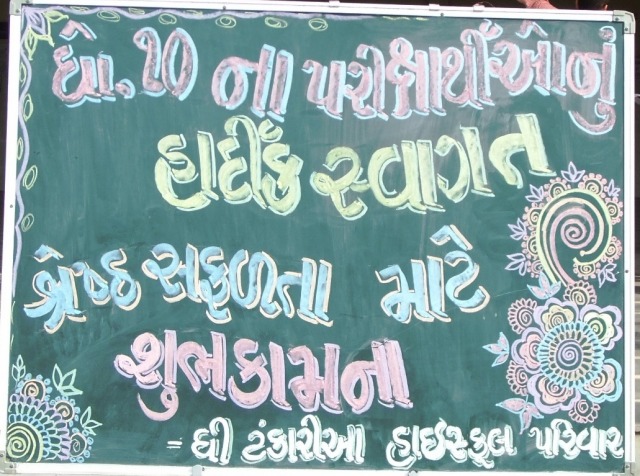 ધો. 10 ના પરીક્ષાર્થીઓનું
હાર્દીક સ્વાગત
શ્રેષ્ઠ સફળતા માટે
શુભકામના
= ધી ટંકારીઆ હાઇસ્કૂલ પરિવાર